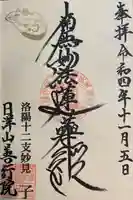 奉拝 令和四年十一月五日
南無妙法蓮華経
洛陽十二支妙見
子
日洋山善行院